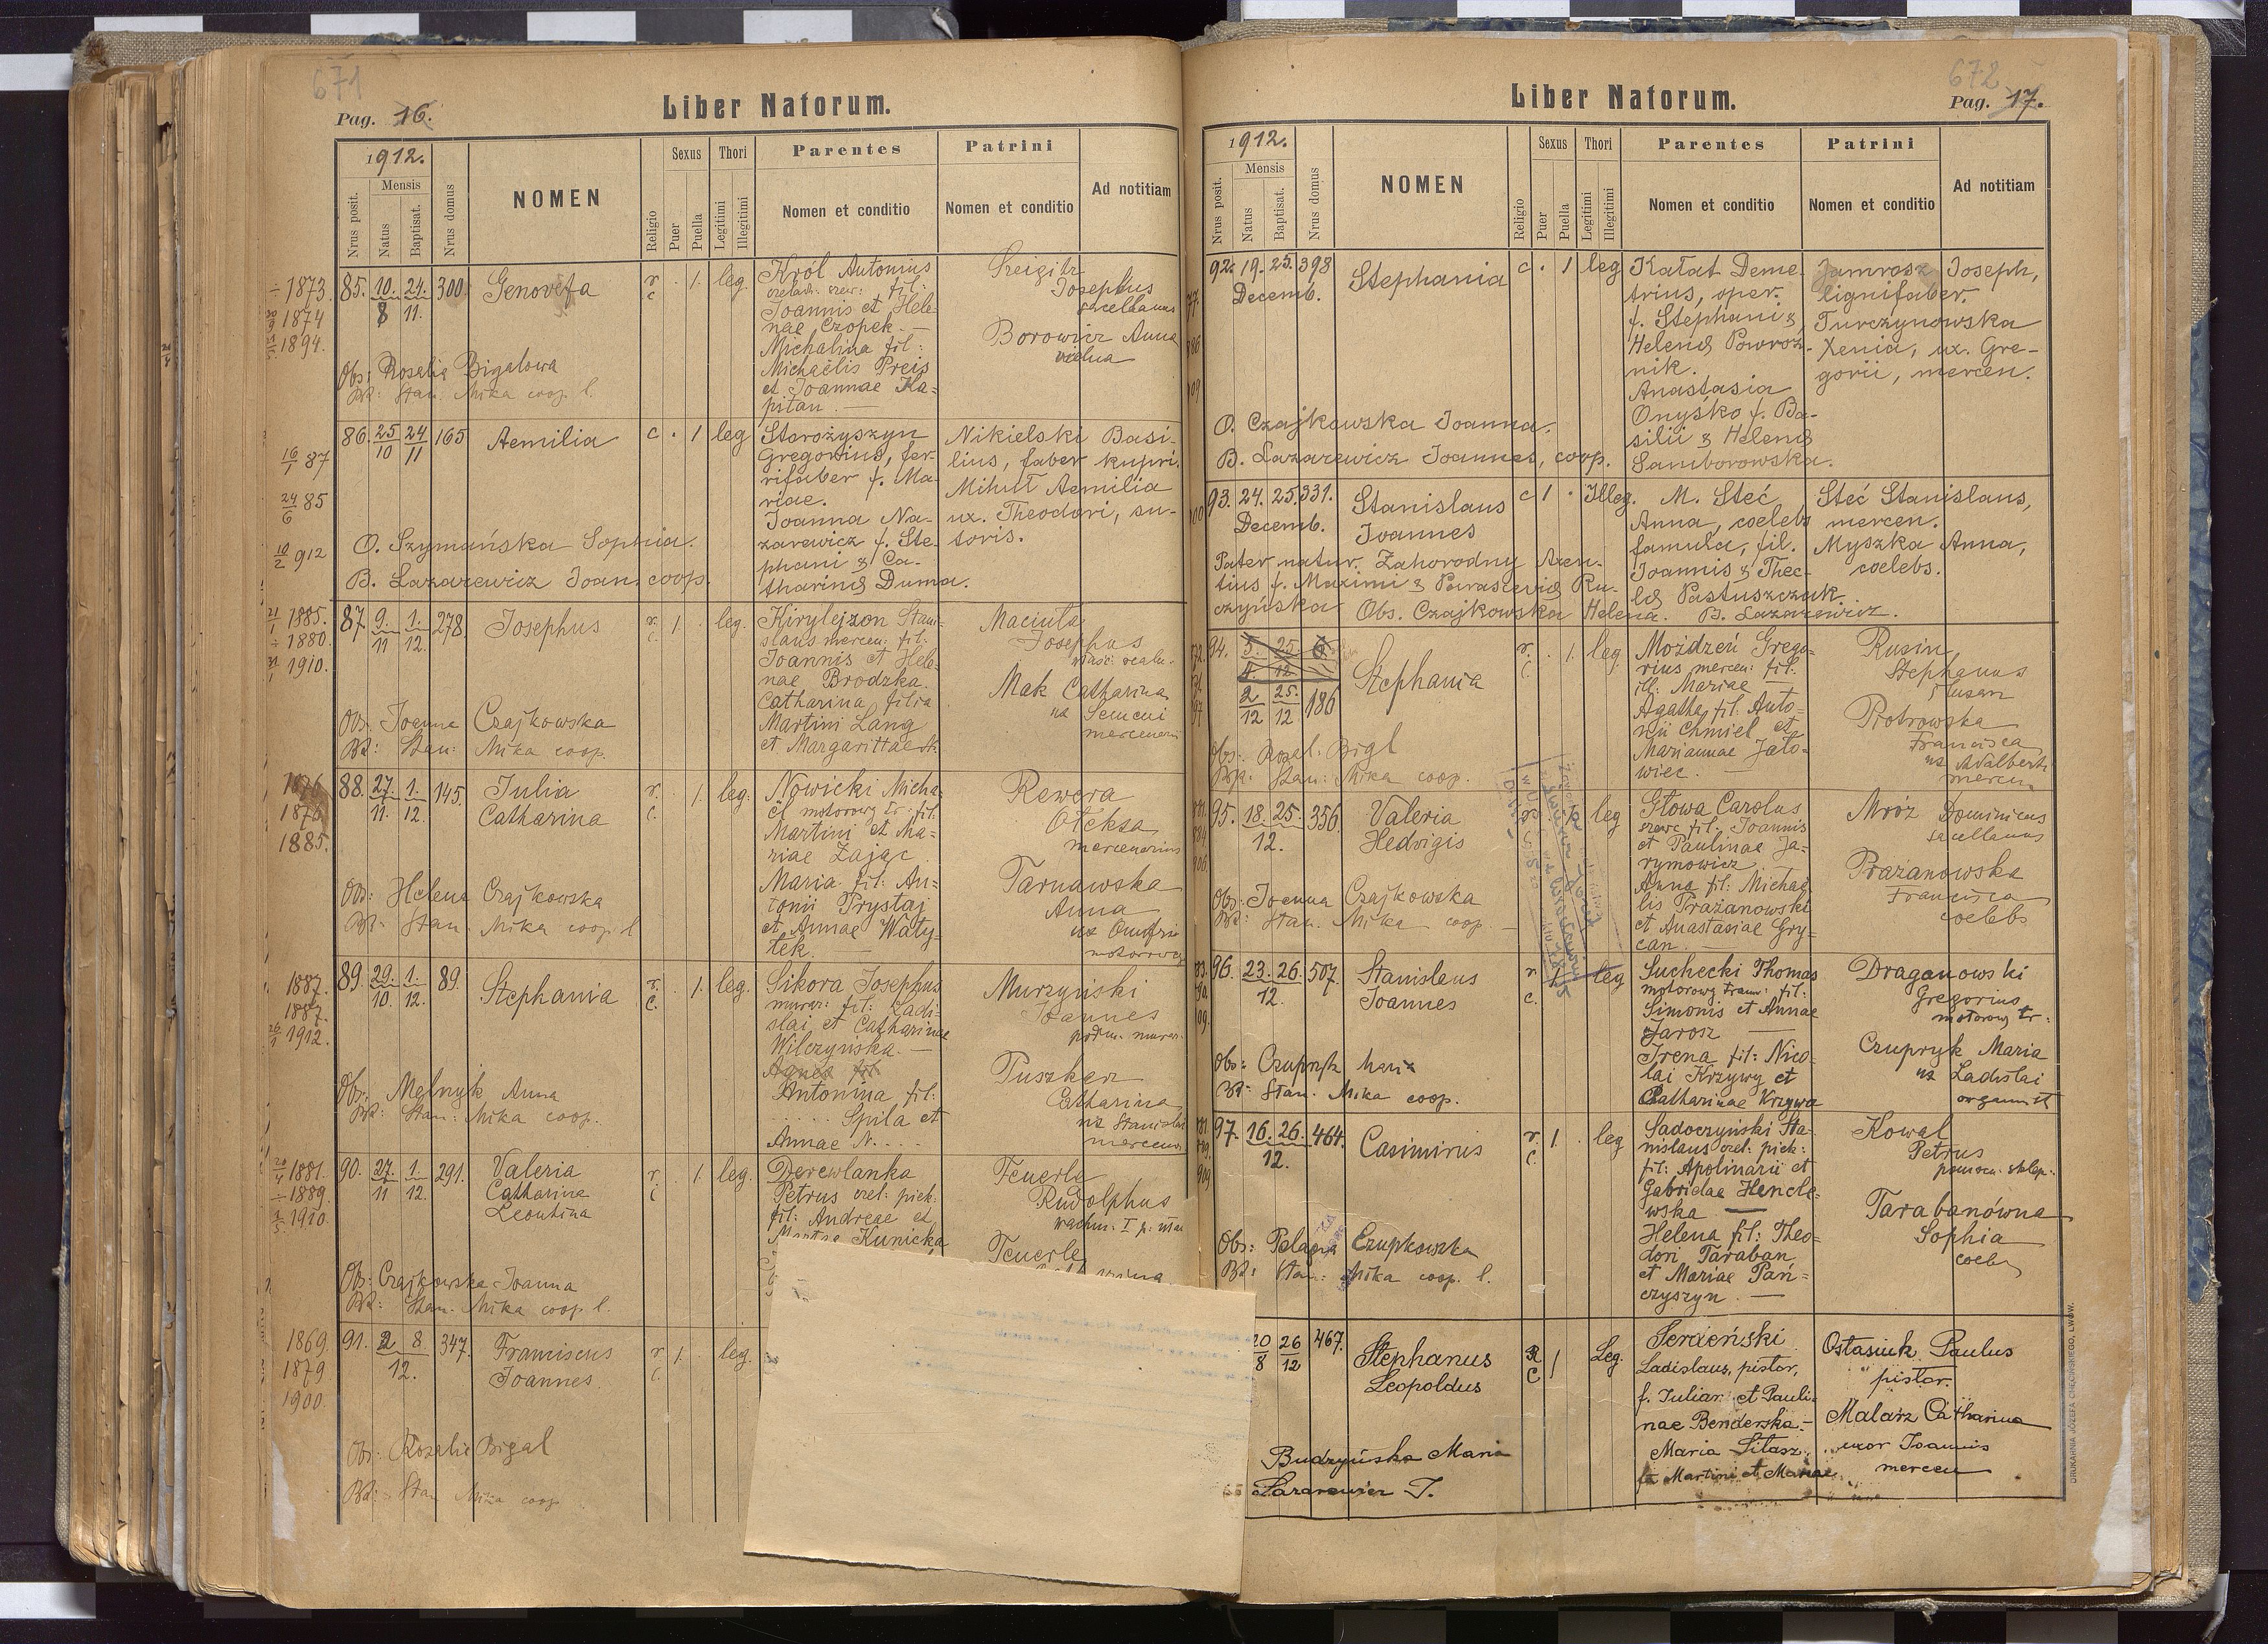 671
Pag. 16.
Liber Natorum.
1912.
Nrus posit.
Mensis
Natus
Baptisat.
Nrus domus
NOMEN
Religio
Sexus
Puer
Puella
Thori
Legitimi
Illegitimi
Parentes
Nomen et conditio
Patrini
Nomen et conditio
Ad notitiam
1873.
1874
1894.
85. 10. 24. 300. Genovefa r. 1. leg.
8 11. c
Król Antonius
Joannis et Hele-
nae Czopek. —
Michalina fil:
Michaelis Preis
et Joannae Ka-
pitan. —
Josephus
sacellanus
Borowicz Anna
Obs: Rosalia Bigalowa
Bt: Stan. Mika coop. l.
16/1 87
24/6 85
10/2 912
86. 25 24 165 Aemilia c . 1 leg
10 11
Starożyszyn
Gregorius, fer-
rifaber f. Ma-
riae.
Joanna Na-
zarewicz f. Ste-
phani & Ca-
tharinæ Duma.
Nikielski Basi-
lius, faber kupri.
Mihuł Aemilia
ux. Theodori, su-
toris.
O. Szymańska Sophia.
B. Lazarewicz Joan. coop.
1885.
1880.
1910.
87. 9. 1. 278. Josephus r. 1. leg.
11 12. c.
Kirylejzon Stani-
slaus mercen: fil:
Joannis et Hele-
nae Brodzka.
Catharina filia
Martini Lang
et Margarittae N.
Maciuta
Josephus
Mak Catharina
ux Semeni
mercenarii
Obs: Joanna Czajkowska
Bt: Stan: Mika coop.
1876
1876
1885.
88. 27. 1. 145. Julia r. 1. leg.
11. 12. Catharina c.
Nowicki Micha-
el motorowy tr: fil:
Martini et Ma-
riae Zając.
Maria fil: An-
tonii Prystaj
et Annae Waty-
tek. —
Rewera
Oleksa
mercenarius
Tarnawska
Anna
ux Onufrii
motorowy
Obs: Helena Czajkowska
Bt: Stan. Mika coop l
1887.
1887.
1912.
89. 29. 1. 89. Stephania r. 1. leg.
10. 12. c.
Sikora Josephus
murar: fil: Ladi-
slai et Catharinae
Wilczyńska. —
Agnes fil.
Antonina fil:
..... Spila et
Annae N....
Murzyński
Joannes
Puszkar
Catharina
ux Stanislai
mercenar
Obs: Melnyk Anna
Bt: Stan: Mika coop.
1881.
1889.
1910.
90. 27. 1. 291. Valeria r 1. leg.
11 12. Catharina c
Leontina
Derewlanka
Petrus czel: piek:
fil: Andreae et
Mariae Kunicka
Feuerle
Rudolphus
Feuerle
Obs: Czajkowska Joanna
Bt: Stan. Mika coop l.
1869.
1879
1900.
91. 2 8. 347. Franciscus r. 1. leg.
12. Joannes c.
Obs: Rosalia Bigal
Bt: Stan Mika coop
672
Pag. 17.
Liber Natorum.
1912.
Nrus posit.
Mensis
Natus
Baptisat.
Nrus domus
NOMEN
Religio
Sexus
Puer
Puella
Thori
Legitimi
Illegitimi
Parentes
Nomen et conditio
Patrini
Nomen et conditio
Ad notitiam
92. 19. 25. 398 Stephania c . 1 leg
Decemb.
Kałat Deme-
trius, oper.
f. Stephani &
Helenæ Powroz-
nik.
Anastasia
Onyśko f. Ba-
silii & Helenæ
Samborowska.
Jamrosz Joseph,
lignifaber.
Turczynowska
Xenia, ux. Gre-
gorii, mercen.
O. Czajkowska Joanna.
B. Lazarewicz Joannes, coop.
93. 24. 25. 331. Stanislaus c 1 . Illeg.
Decemb. Joannes
M. Steć
Anna, coelebs
famula, fil.
Joannis & Thec-
læ Pastuszczuk
Steć Stanislaus,
mercen.
Myszka Anna,
coelebs.
Pater natur. Zahorodny Axen-
tius f. Maximi & Parasceviæ Ru-
czyńska Obs. Czajkowska Helena. B. Lazarewicz.
94. 5. 25. 6
4. 12
2 25. 186 Stephania r. 1. leg
12 12 c.
Możdzeń Grego-
rius mercen: fil.
ill: Mariae —
Agatha fil: Anto-
nii Chmiel et
Mariannae Jało-
wiec. —
Rusin
Stephanus
Piotrowska
Francisca
ux Adalberti
mercen
Obs: Rosal. Bigl
Bt: Stan: Mika coop.
95. 18. 25. 356. Valeria leg
12. Hedvigis
Głowa Carolus
szewc fil: Joannis
et Paulinae Ja-
rymowicz
Anna fil: Michae-
lis Prażanowski
et Anastasiae Gry-
can. —
Mróz Dominicus
sacellanus
Prażanowska
Francisca
coelebs
Obs: Joanna Czajkowska
Bt: Stan. Mika coop —
96. 23. 26. 507. Stanislaus r 1 leg
12. Joannes c.
Suchecki Thomas
motorowy tramw: fil:
Simonis et Annae
Jarosz —
Irena fil: Nico-
lai Krzywy et
Catharinae Krzywa
Draganowski
Gregorius
motorowy tr:
Czupryk Maria
ux Ladislai
organist
Obs: Czupryk Maria
Bt: Stan. Mika coop.
97. 16. 26. 464. Casimirus r. 1. leg
12. c.
Sadoczyński Sta-
nislaus czel: piek:
fil: Apolinarii et
Gabrielae Hencle-
wska —
Helena fil: Theo-
dori Taraban
et Mariae Pań-
czyszyn. —
Kowal
Petrus
pomocn. sklep:
Tarabanówna
Sophia
coelebs
Obs: Pelagia Czupkowska
Bt: Stan: Mika coop. l.
20 26 467. Stephanus R 1 Leg.
8 12 Leopoldus C
Serdeński
Ladislaus, pistor,
f. Julian et Pauli-
nae Benderska —
Maria Sitasz
fa Martini et Mariae
Ostasiuk Paulus
pistor.
Malarz Catharina
uxor Joannis
mercen
Budzyńska Maria
Lazarewicz J.
DRUKARNIA JÓZEFA CHĘCIŃSKIEGO, LWÓW.